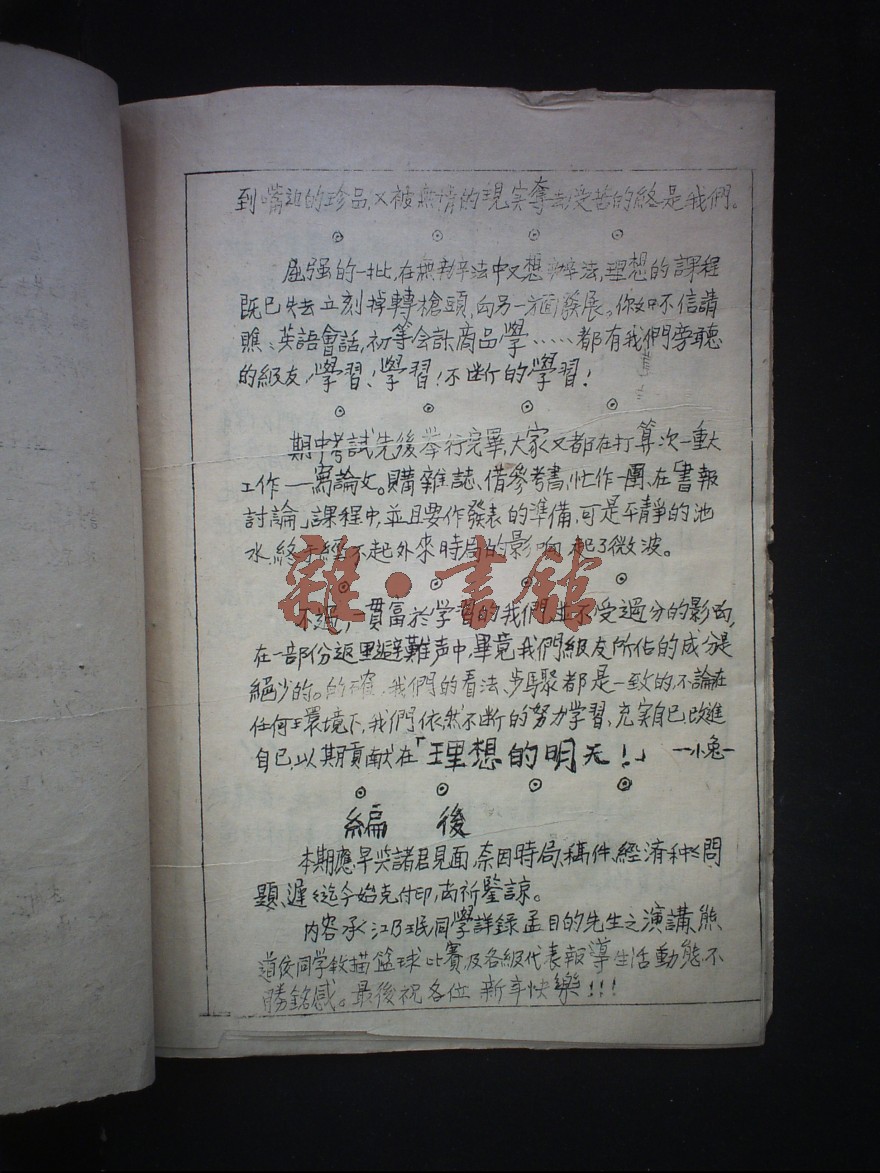 到嘴边的珍品,又被無情的現实奪去,受苦的終是我們。
屈强的一批,在無办法中又想办法,理想的課程
既已失去立刻掉轉槍頭,向另一方面發展。你如不信請
瞧:英語會話,初等会計,商品學……都有我們旁聽
的級友,學習!學習!不断的學習!
期中考試先後举行完畢,大家又都在打算次一重大
工作——寫論文。購雜誌、借參考書,忙作一團、在「書報
討論」課程中,並且要作發表的準備,可是平靜的池
水,終未經不起外來時局的影响,起了微波。
雜·書館
不過,一貫富於学習的我們並不受過分的影响,
在一部份返里避難声中,畢竟我們級友所佔的成分是
絕少的。的確,我們的看法、步驟都是一致的,不論在
任何環境下,我們依然不断的努力学習、充実自己,改進
自己,以期貢献在「理想的明天!」 —小兔—
編 後
本期應早與諸君見面,奈因時局、稿件、經済种种問
題,遲遲迄今始克付印,尚祈鑒諒。
内容承江乃珉同學詳錄孟目的先生之演講,熊
道佼同学敘描篮球比賽,及各級代表報導生活動態,不
勝銘感。最後祝各位 新年快樂!!!